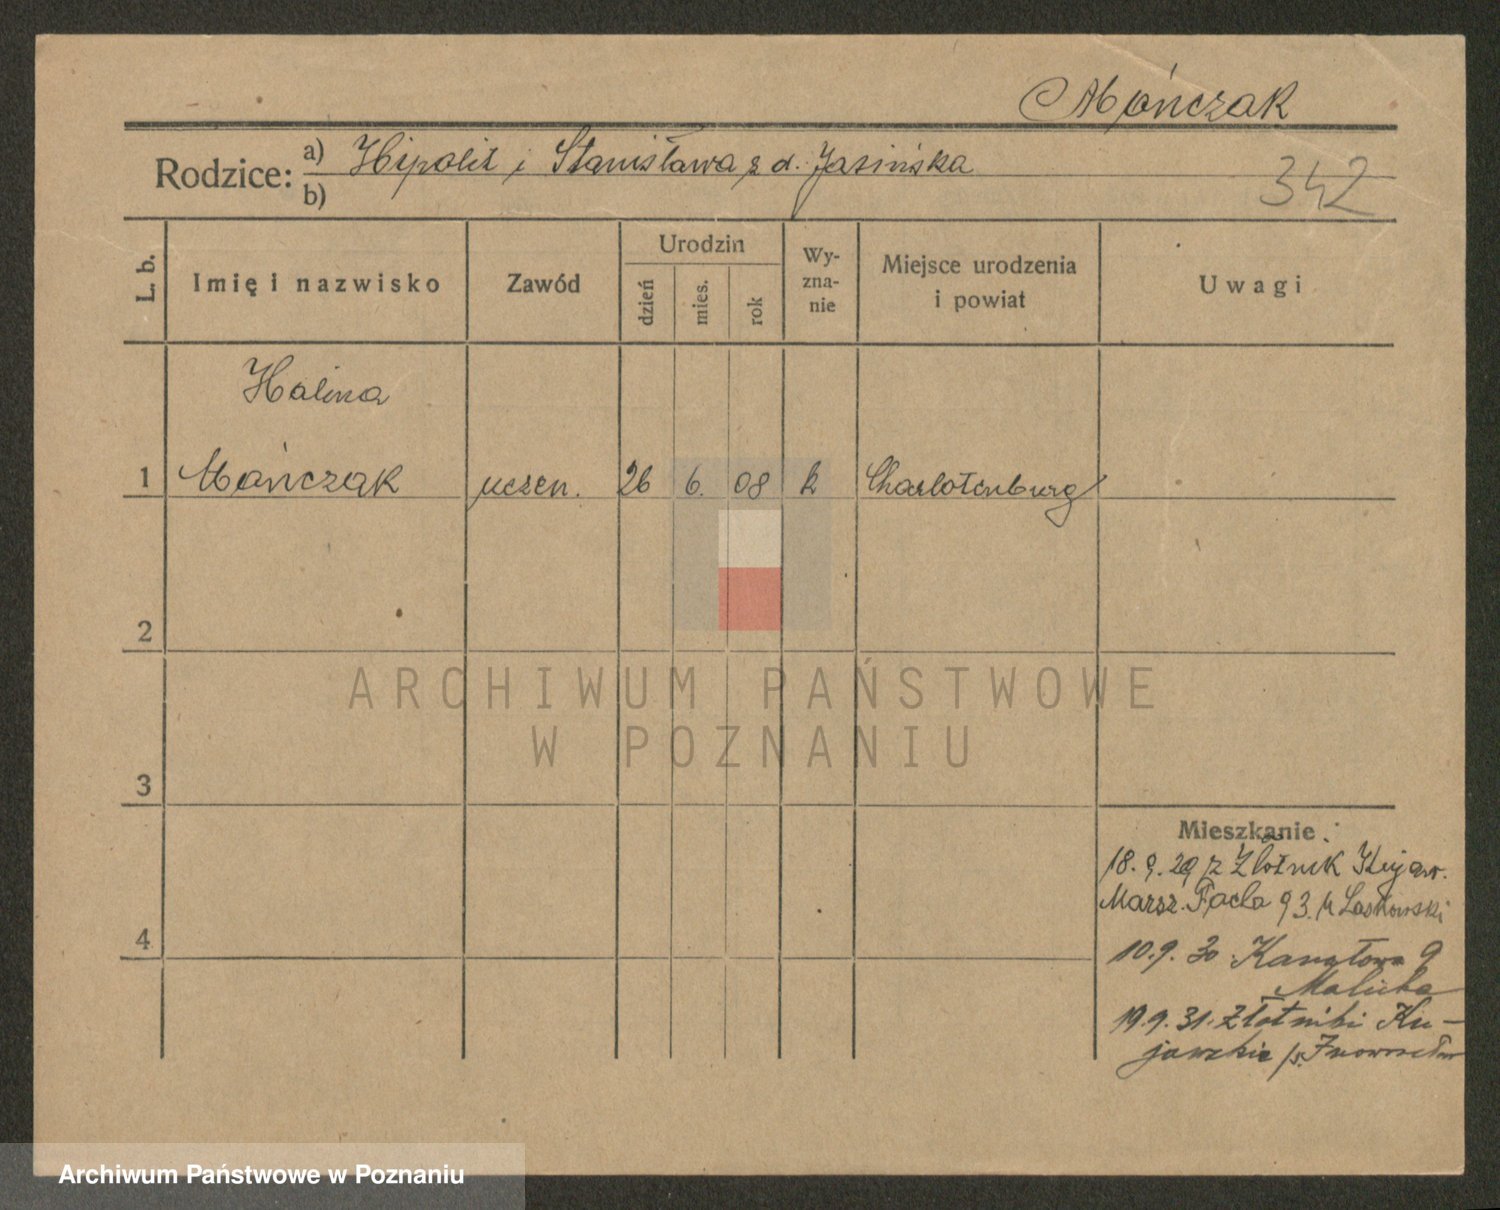 Mańczak
Rodzice: a) Hipolit i Stanisława z d. Jasińska
b)
342
L. b.
Imię i nazwisko
Zawód
Urodzin
dzień
mies.
rok
Wy-
zna-
nie
Miejsce urodzenia
i powiat
Uwagi
Halina
1 Mańczak uczen. 26 6. 08 k Charlotenburg
2
ARCHIWUM PAŃSTWOWE
W POZNANIU
3
Mieszkanie
18. 9. 29 z Złotnik Kujaw.
Marsz. Focha 93. Laskowski
4
10. 9. 30 Kanałowa 9
Malicka
19. 9. 31. Złotniki Ku-
jawskie /p. Inowrocław
Archiwum Państwowe w Poznaniu